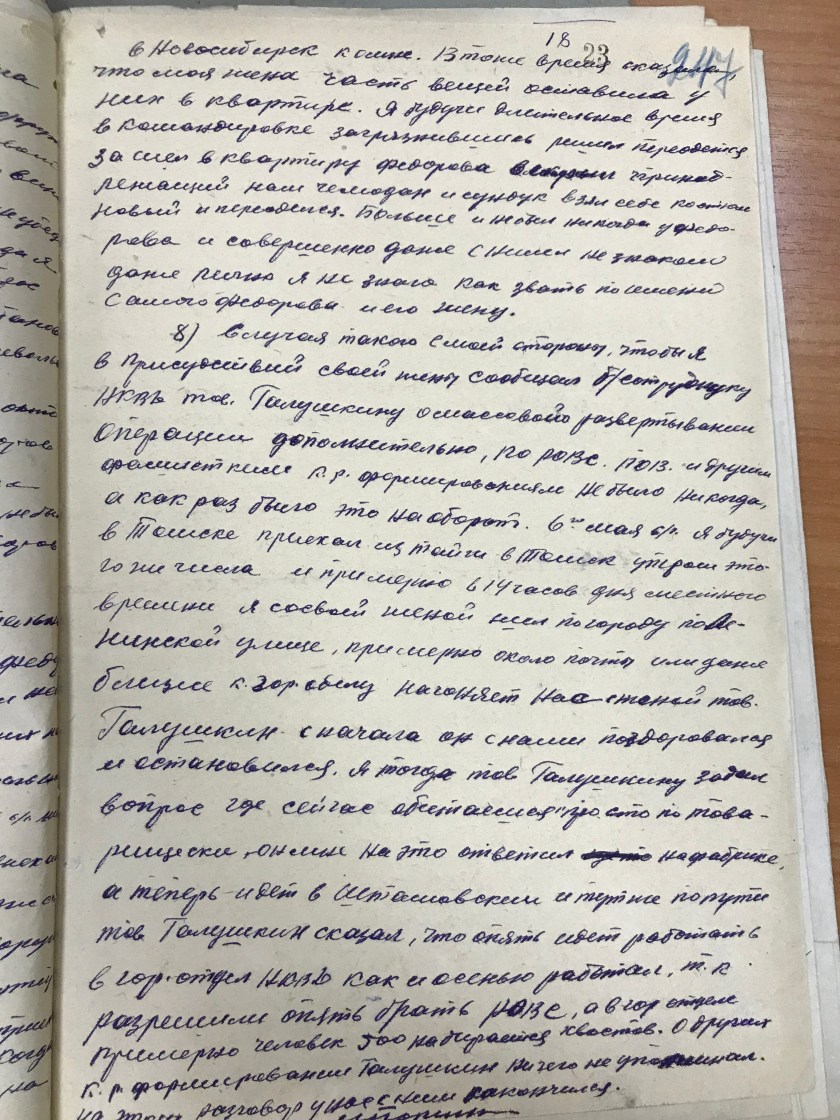 18 23 247
в Новосибирск ко мне. В тоже время сказали,
что моя жена часть вещей оставила у
них в квартире. Я будучи длительное время
в командировке загрязнившись решил переодется
зашел в квартиру Федорова принад-
лежащий нам чемодан и сундук взял себе костюм
новый и переоделся. Больше и не был никогда у Федо-
рова и совершенно даже с ними не знаком
даже лично я не знаю как звать по имени
самого Федорова и его жену.
8) Случая такого с моей стороны, чтобы я
в присутствий своей жены сообщал б/сотруднику
НКВД тов. Галушкину о массовом развертывании
операции дополнительно, по ровс. пов. и другим
фашистким к.р. формированиям не было никогда,
а как раз было это наоборот. 6го мая с/г. я будучи
в Томске приехал из тайги в Томск утром это-
го же числа и примерно в 14 часов дня местного
времени я со своей женой шел по городу по Ле-
нинской улице, примерно около почты или даже
ближе к нагоняет нас с женой тов.
Галушкин сначала он с нами поздоровался
и остановился. Я тогда тов Галушкину задал
вопрос где сейчас обитаешся просто по това-
рищески, он мне на это ответил на фабрике,
а теперь идет в и тут же по пути
тов Галушкин сказал, что опять идет работать
в гор.отдел НКВД как и осенью работал, т.к.
разрешили опять брать РОВС, а в гор отделе
примерно человек 500 набирается хвостов. О других
к.р. формировании Галушкин ничего не упоминал.
на этом разговор у нас с ним закончился.